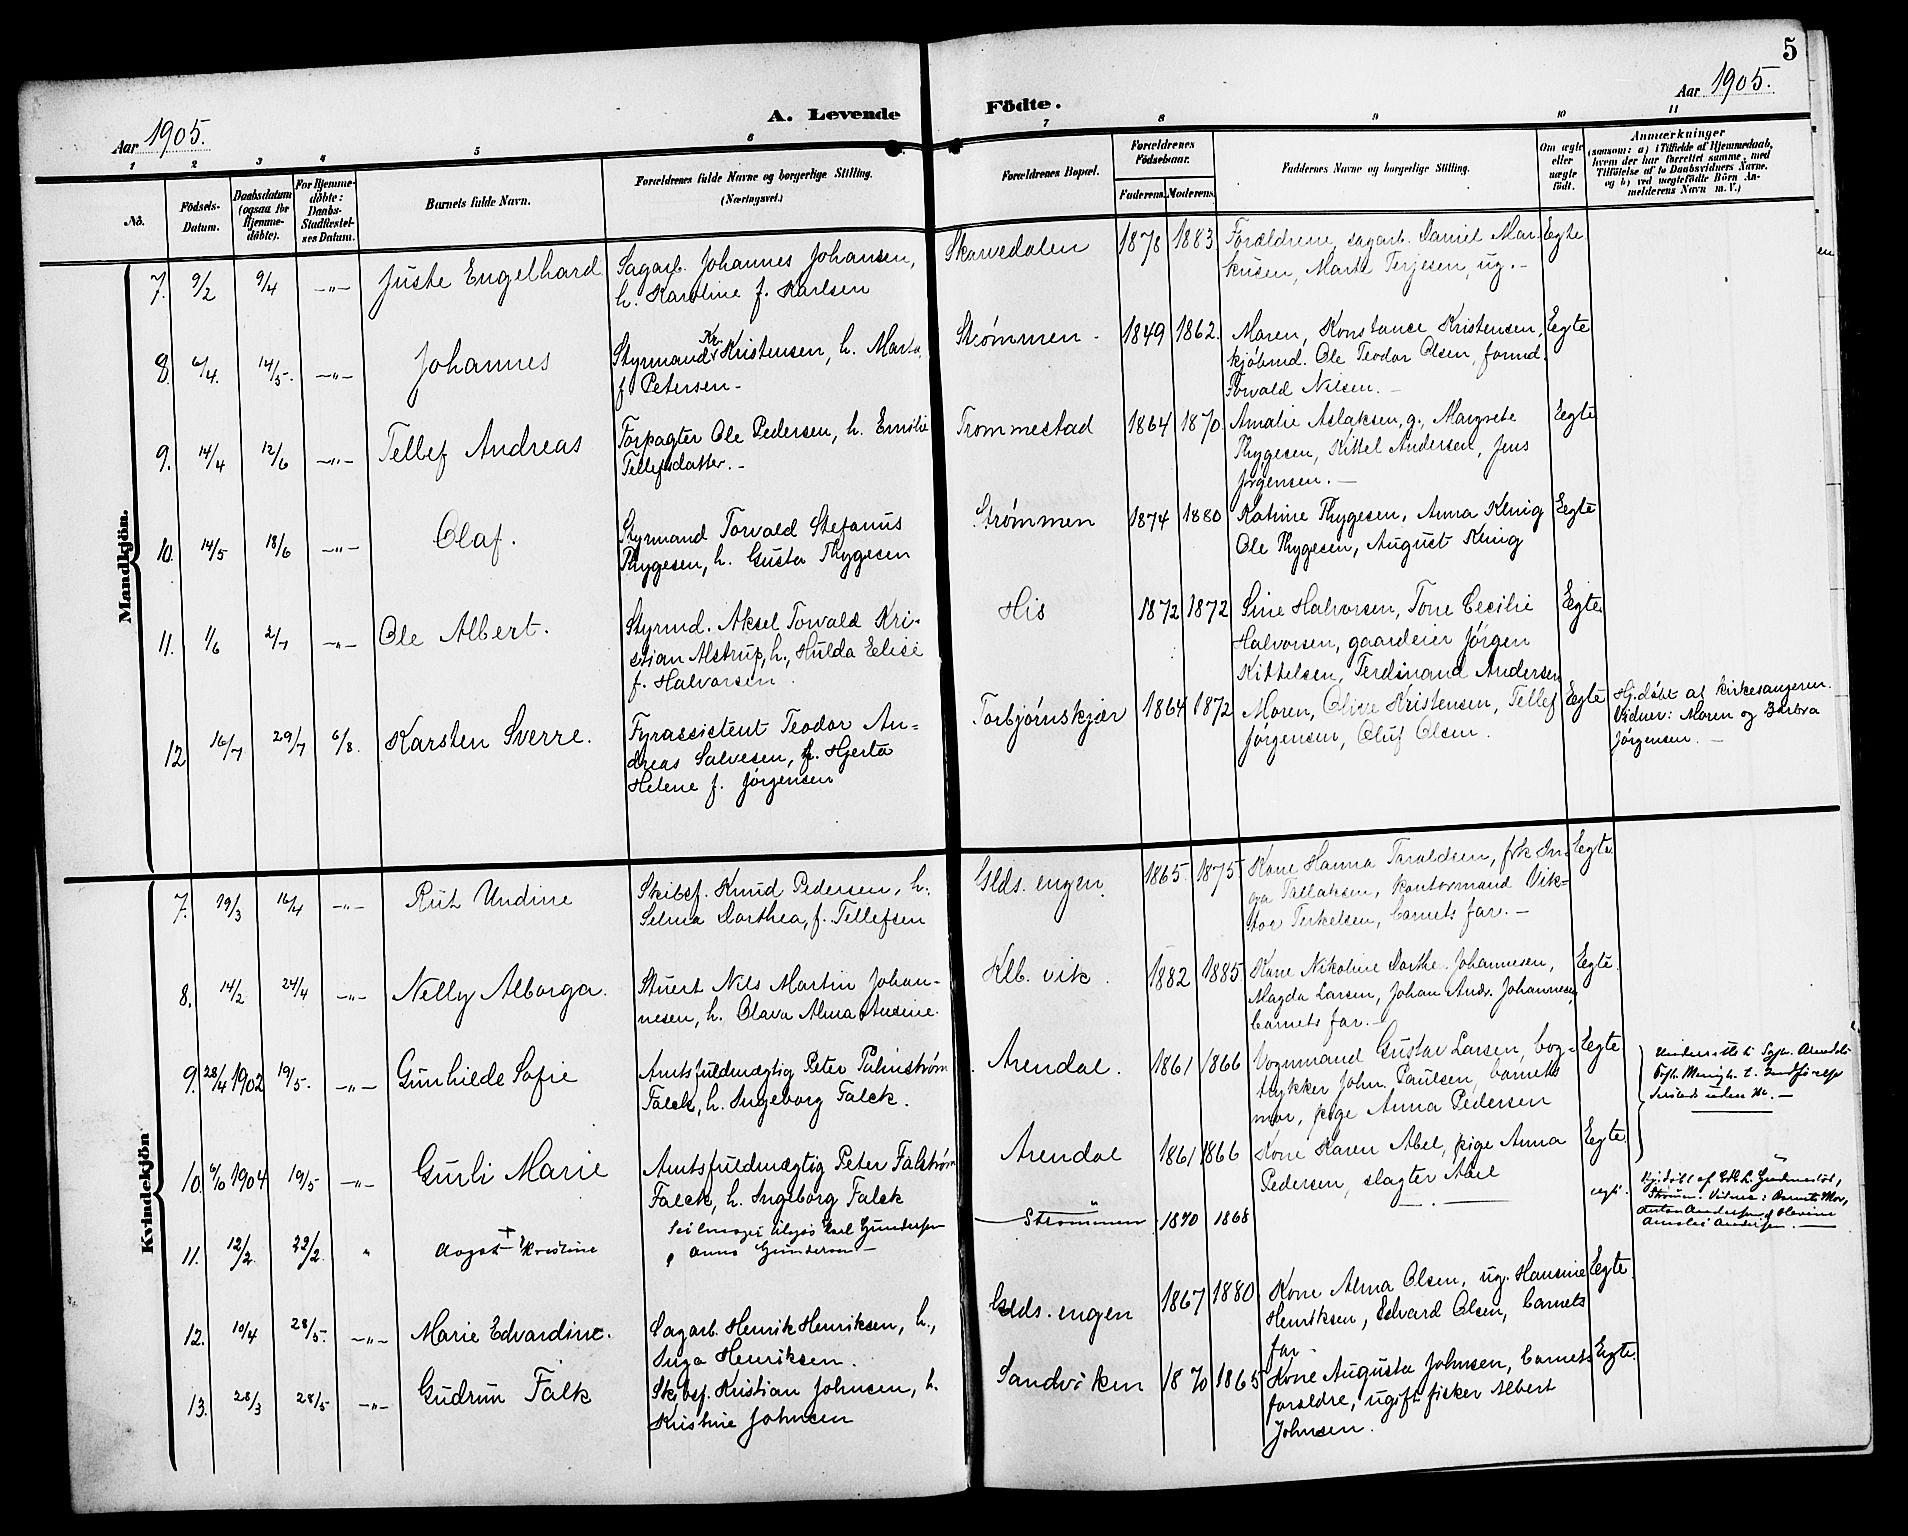 5
Aar 1905.
A. Levende
Födte.
Aar 1905.
1 2 3 4 5 6 7 8 9 10 11
No.
Födsels-
Datum.
Daabsdatum
(ogsaa for
Hjemme-
döbte).
For Hjemme-
döbte:
Daabs-
Stadfæstel-
ses Datum.
Barnets fulde Navn.
Forældrenes fulde Navne og borgerlige Stilling.
(Næringsvei.)
Forældrenes Bopæl.
Forældrenes
Födselsaar.
Faderens. Moderens.
Faddernes Navne og borgerlige Stilling.
Om ægte
eller
uægte
födt.
Anmærkninger
(saasom: a) i Tilfælde af Hjemmedaab,
hvem der har forrettet samme, med
Tilföielse af to Daabsvidners Navne,
og b) ved uægtefödte Börn An-
melderens Navn m. V.)
Mandkjön.
7. 9/2 9/4 -"- Juste Engelhard
Sagarb. Johannes Johansen,
h. Karoline f. Karlsen
Skarvedalen 1878 1883
Forældrene, sagarb. Daniel Mar-
kusen, Marte Terjesen, ug. -
Egte
8. 6/4. 14/5. -"- Johannes
Kr.
Styrmand Kristensen, h. Marta,
f. Petersen -
Strømmen - 1849 1862.
Maren, Konstance Kristensen,
kjøbmd. Ole Teodor Olsen, formd.
Torvald Nilsen. -
Egte
9. 14/4 12/6 -"- Tellef Andreas
Forpagter Ole Pedersen, h. Emilie
Tellefsdatter. -
Trommestad 1864 1870.
Amalie Aslaksen, g., Margrete
Thygesen, Kittel Andersen, Jens
Jørgensen. -
Egte
10. 14/5 18/6 -"- Olaf.
Styrmand Torvald Stefanus
Thygesen, h. Gusta Thygesen
Strømmen 1874 1880
Katrine Thygesen, Anna König
Ole Thygesen, August König
Egte
11. 1/6 2/7 -"- Ole Albert.
Styrmd. Aksel Torvald Kri-
stian Alstrup, h., Hulda Elise
f. Halvorsen.
His 1872 1872
Sine Halvorsen, Tone Cecilie
Halvorsen, gaardeier Jørgen
Kittelsen, Ferdinand Andersen
Egte
12 16/7 29/7 6/8. Karsten Sverre.
Fyrassistent Teodor An-
dreas Salvesen, h. Hjerta
Helene f. Jørgensen
Torbjørnskjær 1864 1872
Maren, Olive Kristensen, Tellef
Jørgensen, Oluf Olsen.
Egte
Hj.døbt af kirkesangeren.
Vidner: Maren og Barbra
Jørgensen. -
Kvindekjön
7. 19/3 16/4 -"- Rut Undine
Skibsf. Knud Pedersen, h.
Selma Dorthea, f. Tellefsen
Glds. engen. 1865. 1875
Kone Hanna Taraldsen, frk In-
ga Tallaksen, kontormand Vik-
tor Terkelsen, barnets far. -
Egte
8. 14/2 24/4 -"- Nelly Alborga.
Stuert Nils Martin Johan-
nesen, h. Olava Alma Andine.
Klb. vik. 1882 1885
Kone Nikoline Dorthe Johannesen,
Magda Larsen, Johan Andr. Johannesen,
barnets far. -
Egte.
9. 28/4 1902 19/5. -"- Gunhilde Sofie
Amtsfuldmægtig Peter Palmstrøm
Falck, h. Ingeborg Falck.
Arendal. 1861 1866
Vognmand Gustav Larsen, bog-
trykker John. Paulsen, barnets
mor, pige Anna Pedersen
Egte
10. 6/10 1904 19/5 -"- Gurli Marie
Amtsfuldmægtig Peter Falstrøm
Falck, h. Ingeborg Falck
Arendal 1861 1866
Kone Karen Abel, pige Anna
Pedersen, slagter Abel
Egte.
11. 12/2. 22/2. " Aagot † Kristine
Seilmager Karl Gundersen
Anna Gundersen -
Strømmen 1870 1868
egte.
Hj. døbt af
Strømm. Vidner: Barnets Mor,
Anton Andersen
Andersen.
12. 10/4 28/5. -"- Marie Edvardine.
Sagarb. Henrik Henriksen, h.,
Inga Henriksen.
Glds. engen 1867 1880
Kone Alma Olsen, ug. Hansine
Henriksen, Edvard Olsen, barnets
far -
Egte
13. 28/3 28/5 -"- Gudrun Falk
Skibsf. Kristian Johnsen, h.
Kristine Johnsen
Sandviken 1870 1865
Kone Augusta Johnsen, barnets
foraldre, ugift fisker Albert
Johnsen.
Egte.